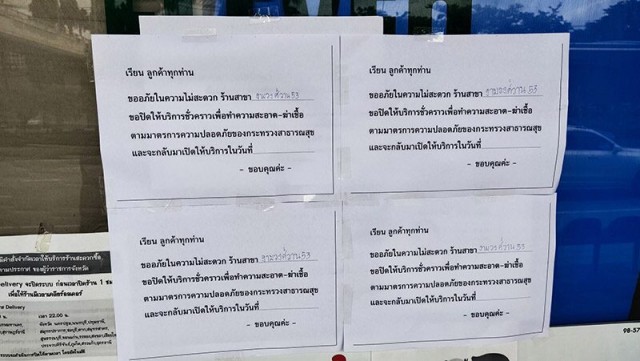 เรียน ลูกค้าทุกท่าน
ขออภัยในความไม่สะดวก ร้านสาขา งามวงศ์วาน 53
ขอปิดให้บริการชั่วคราวเพื่อทำความสะอาด-ฆ่าเชื้อ
ตามมาตรการความปลอดภัยของกระทรวงสาธารณสุข
และจะกลับมาเปิดให้บริการในวันที่
- ขอบคุณค่ะ -
เรียน ลูกค้าทุกท่าน
ขออภัยในความไม่สะดวก ร้านสาขา งามวงศ์วาน 53
ขอปิดให้บริการชั่วคราวเพื่อทำความสะอาด-ฆ่าเชื้อ
ตามมาตรการความปลอดภัยของกระทรวงสาธารณสุข
และจะกลับมาเปิดให้บริการในวันที่
- ขอบคุณค่ะ -
เรียน ลูกค้าทุกท่าน
ขออภัยในความไม่สะดวก ร้านสาขา งามวงศ์วาน 53
ขอปิดให้บริการชั่วคราวเพื่อทำความสะอาด-ฆ่าเชื้อ
ตามมาตรการความปลอดภัยของกระทรวงสาธารณสุข
และจะกลับมาเปิดให้บริการในวันที่
- ขอบคุณค่ะ -
เรียน ลูกค้าทุกท่าน
ขออภัยในความไม่สะดวก ร้านสาขา งามวงศ์วาน 53
ขอปิดให้บริการชั่วคราวเพื่อทำความสะอาด-ฆ่าเชื้อ
ตามมาตรการความปลอดภัยของกระทรวงสาธารณสุข
และจะกลับมาเปิดให้บริการในวันที่
- ขอบคุณค่ะ -
มีคำสั่งจำกัดเวลาให้บริการร้านสะดวกซื้อ
ของ ผู้ว่าราชการจังหวัด
elivery จะปิดระบบ ก่อนเวลาปิดร้าน 1 ช
Delivery
เวลา 22.00 น.
98-57